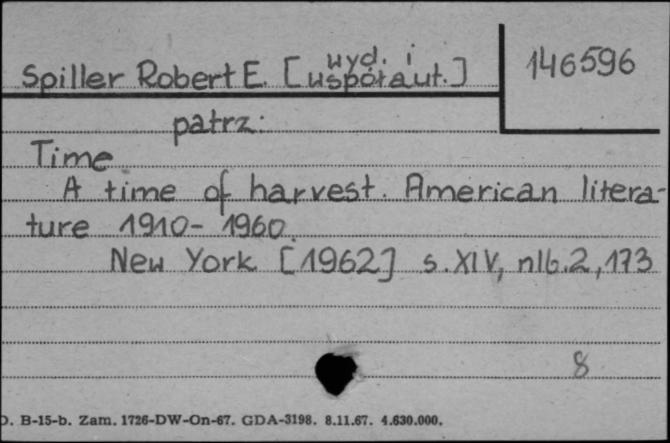 Spiller Robert E. [wyd. i współaut.] 146596
patrz:
Time
A time of harvest. American litera-
ture 1910-1960.
New York [1962] s. XIV, nlb.2,173
8
D. B-15-b. Zam. 1726-DW-On-67. GDA-3198. 8.11.67. 4.630.000.